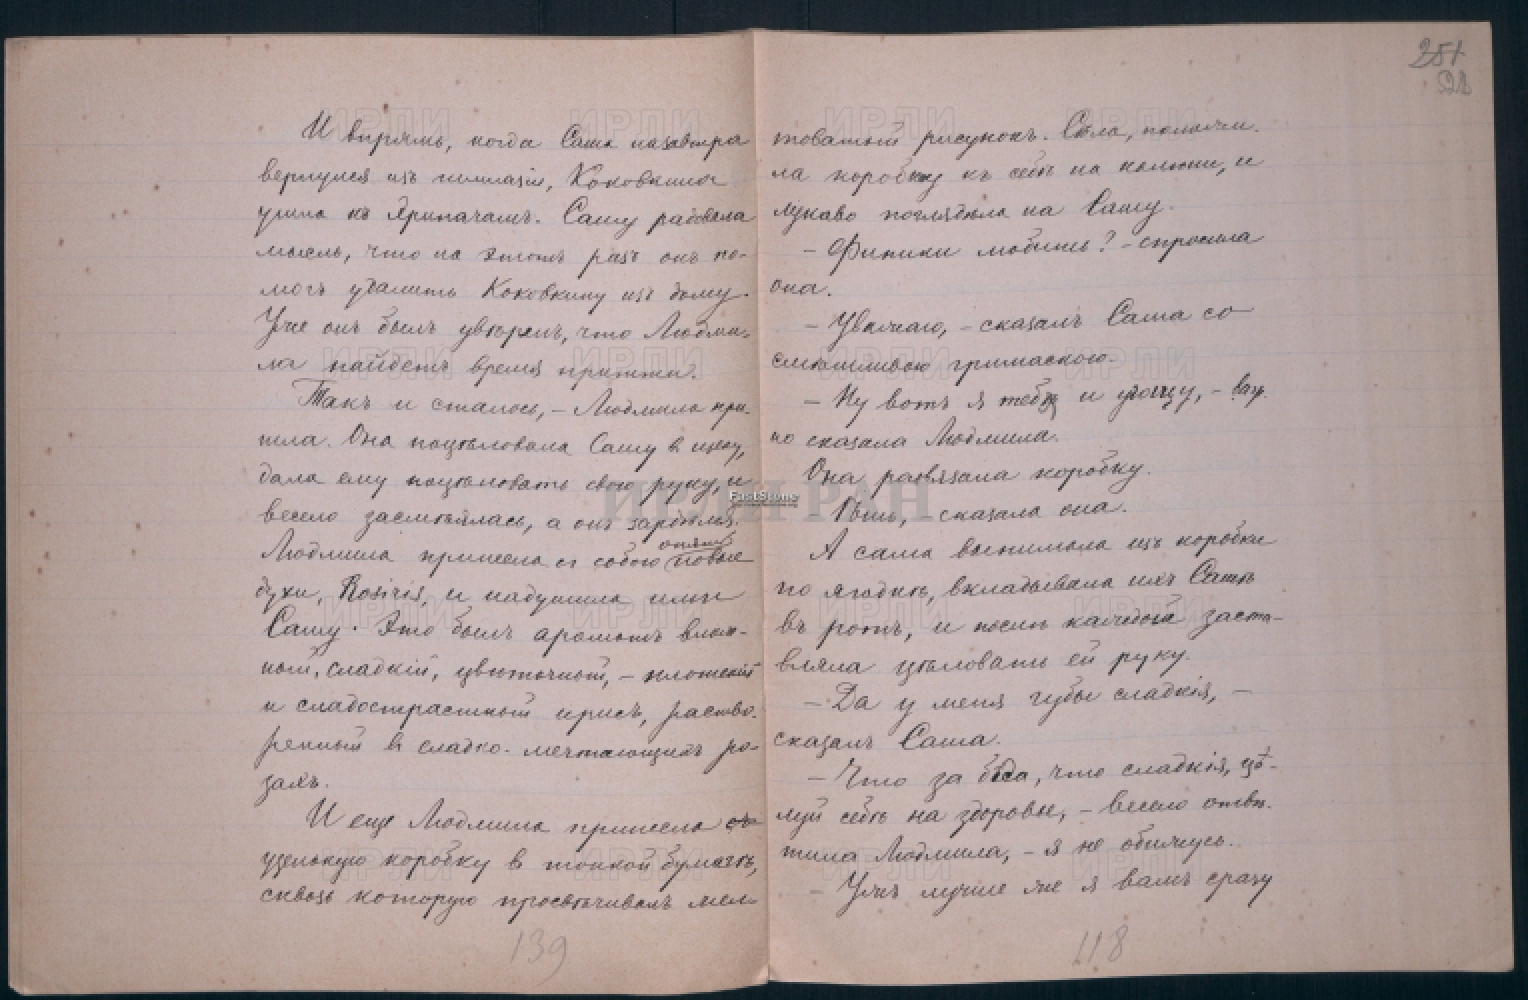 И впрямь, когда Саша назавтра
вернулся изъ гимназіи, Коковкина
ушла къ Хрипачамъ. Сашу радовала
мысль, что на этотъ разъ онъ по-
могъ удалить Коковкину изъ дому.
Уже онъ былъ увѣренъ, что Людми-
ла найдетъ время притти.
Такъ и сталось, – Людмила при-
шла. Она поцѣловала Сашу в щеку,
дала ему поцѣловать свою руку, и
весело засмѣялась, а онъ зардѣлся.
опять
Людмила принесла съ собою новые
духи, Rosiris, и надушила ими
Сашу. Это былъ ароматъ влаж-
ный, сладкій, цвѣточный, –
и сладострастный ирисъ, раство-
ренный в сладко-мечтающихъ ро-
захъ.
И еще Людмила принесла
узенькую коробку в тонкой бумагѣ,
сквозь которую просвѣчивалъ
товатый рисунокъ. Сѣла, положи-
ла коробку къ себѣ на колѣни, и
лукаво поглядѣла на Сашу.
– Финики любишь? – спросила
она.
– Уважаю, – сказалъ Саша со
смѣшливою гримаскою.
– Ну вотъ я тебя и угощу, – важ-
но сказала Людмила.
Она развязала коробку.
– Ѣшь, сказала она.
А сама вынимала изъ коробки
по ягодкѣ, вкладывала ихъ Сашѣ
въ ротъ, и послѣ каждой заста-
вляла цѣловать ей руку.
– Да у меня губы сладкія, –
сказалъ Саша.
– Что за бѣда, что сладкія, цѣ-
луй себѣ на здоровье, – весело отвѣ-
тила Людмила, – я не обижусь.
– Ужъ лучше же я вамъ сразу
139
118
251
ИРЛИ РАН
FastStone